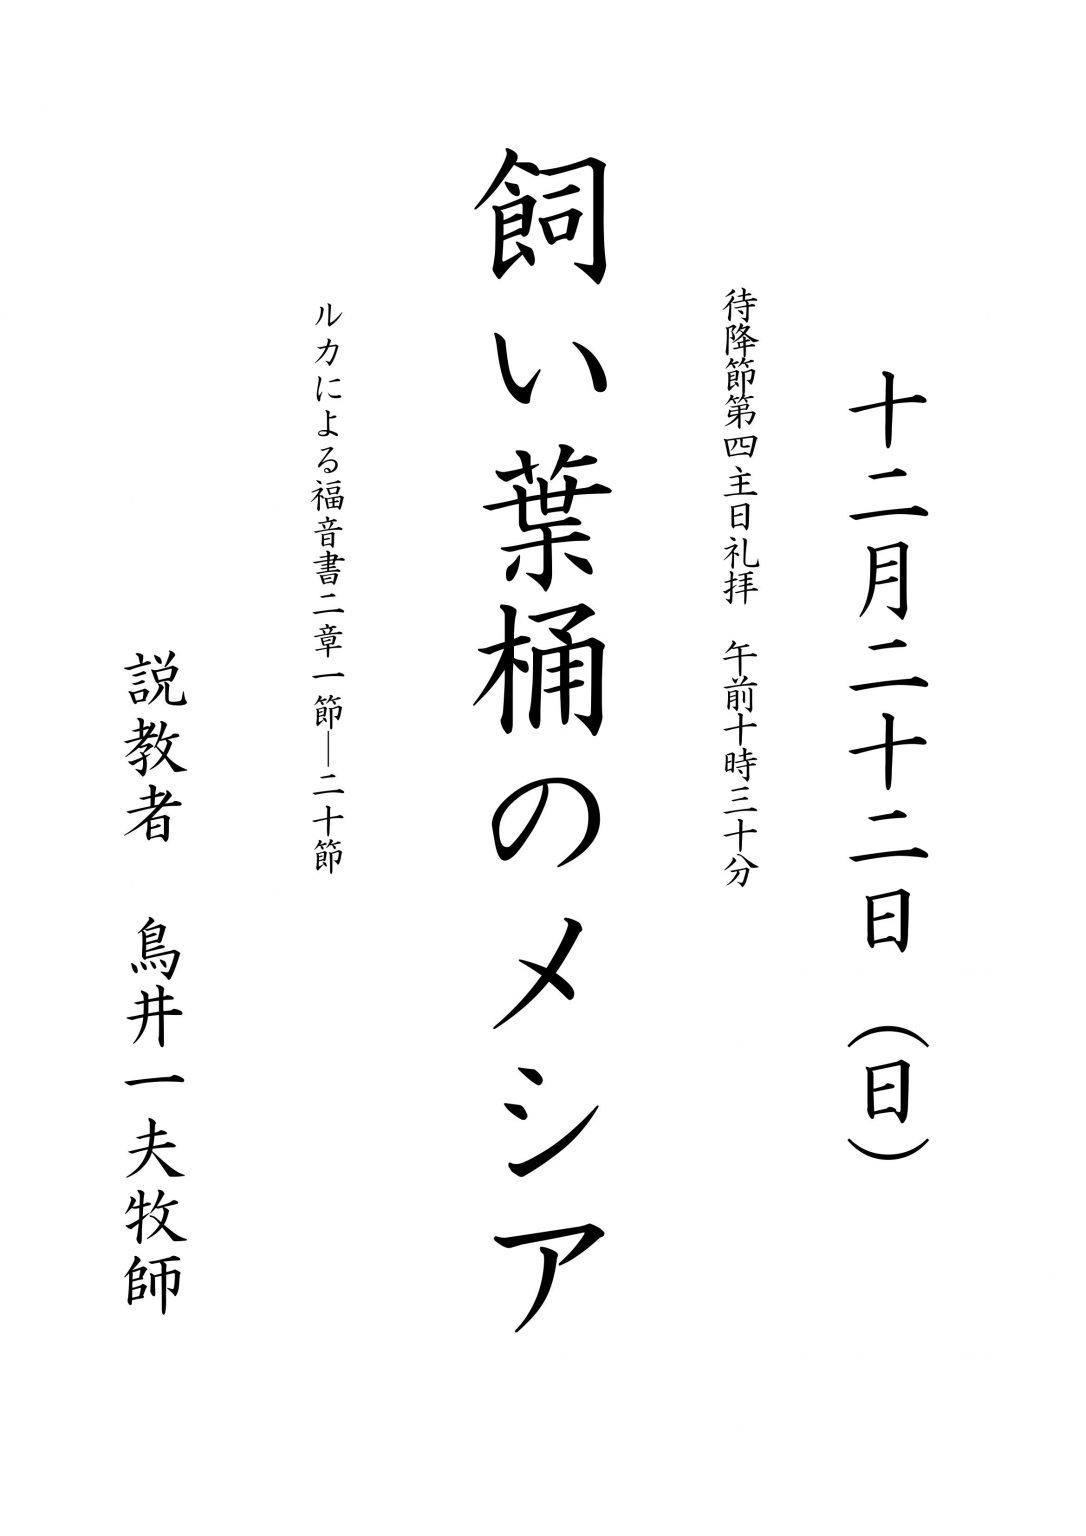 十二月二十二日 （日）
待降節第四主日礼拝　午前十時三十分
飼い葉桶のメシア
ルカによる福音書二章一節―二十節
説教者　鳥井一夫牧師